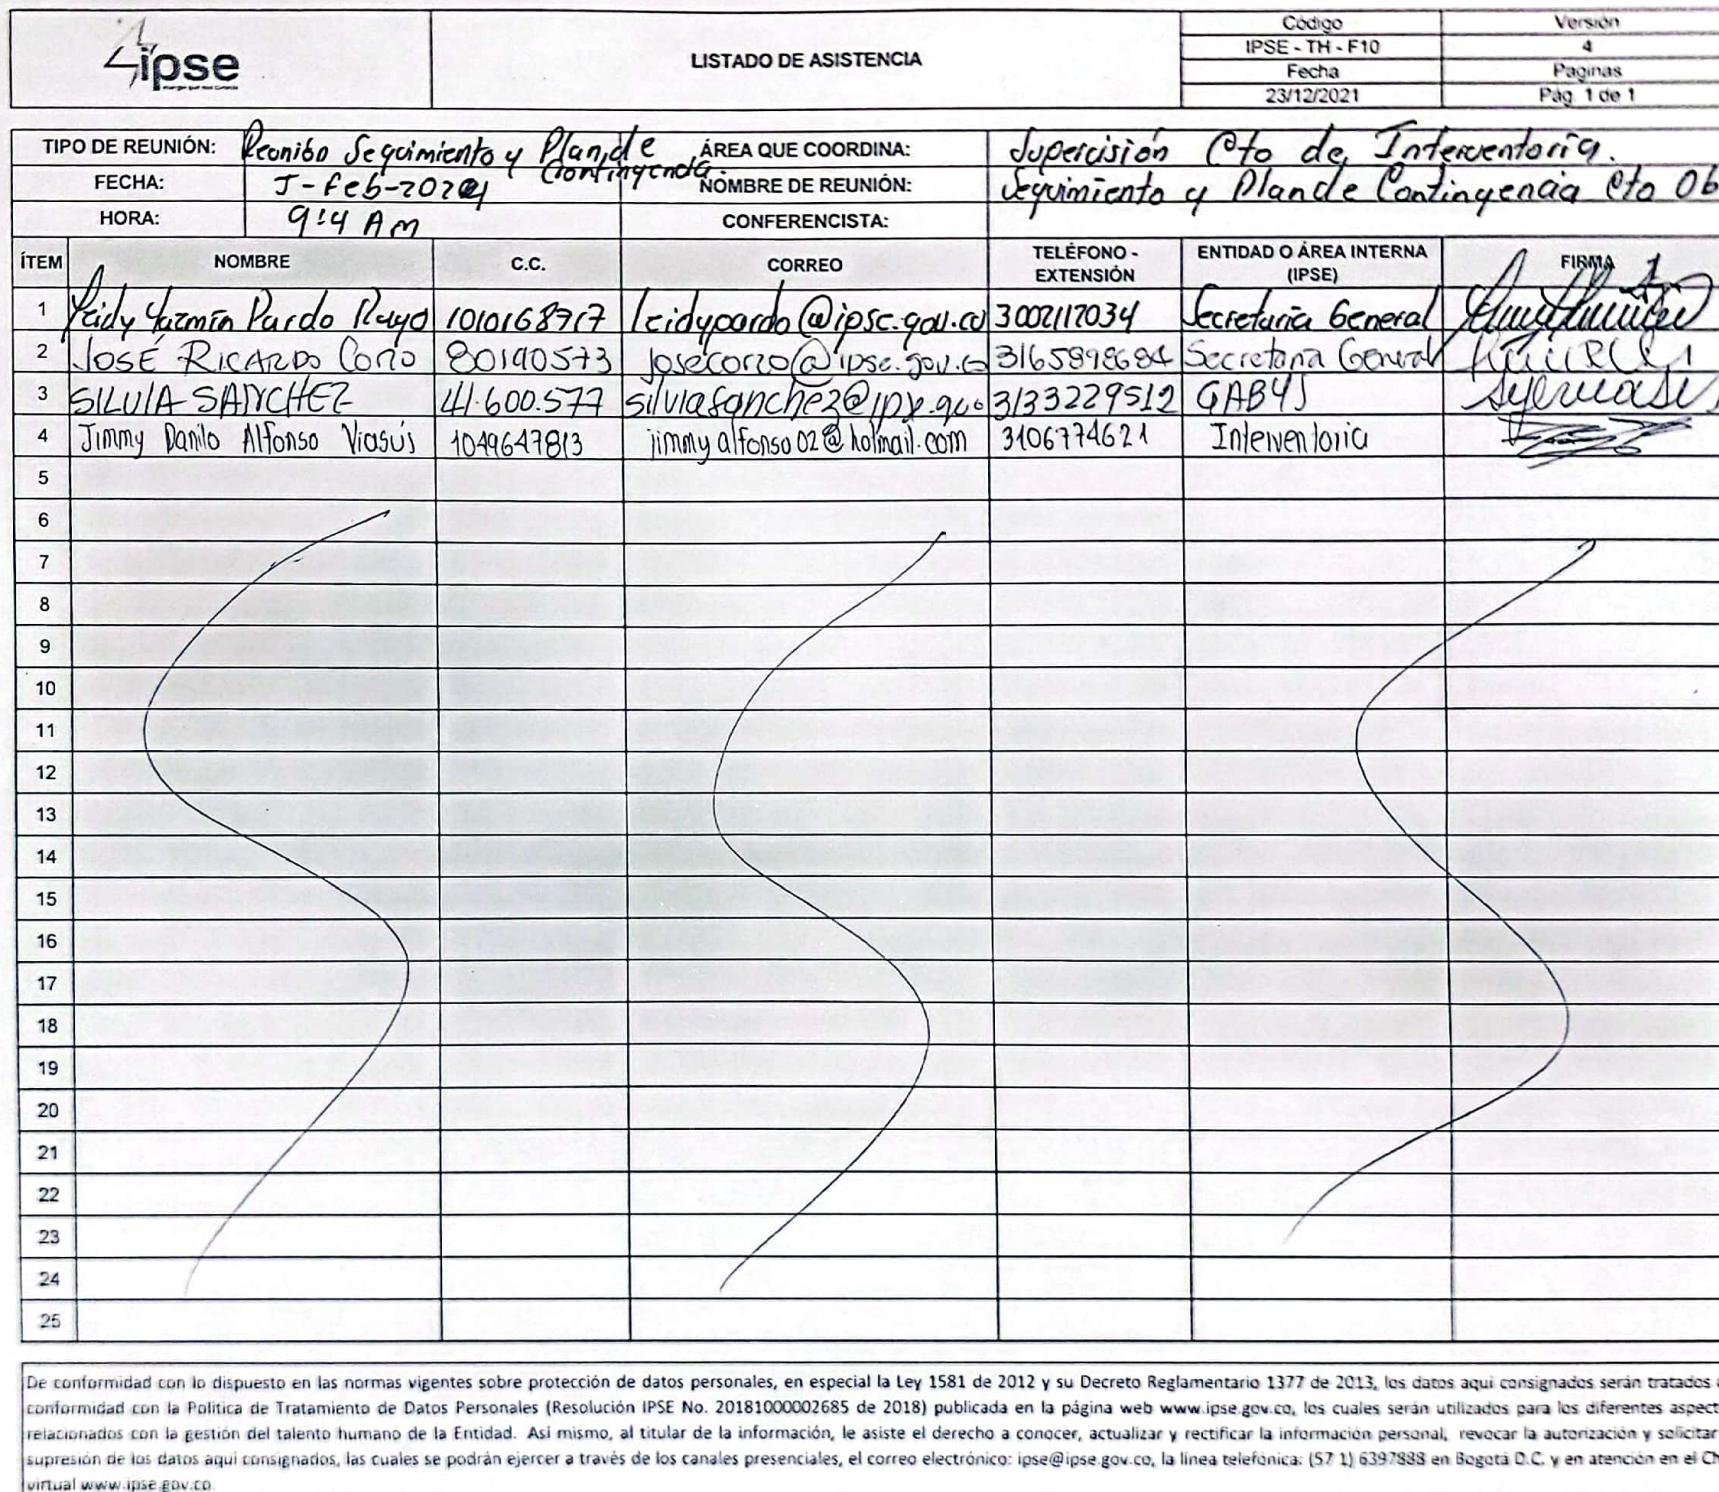 ipse
LISTADO DE ASISTENCIA
Código
Versión
IPSE - TH - F10
4
Fecha
Paginas
23/12/2021
Pág. 1 de 1
TIPO DE REUNIÓN: Reunión Seguimiento y Plan de Contingencia. ÁREA QUE COORDINA: Supervisión Cto de Interventoria.
FECHA: 5-feb-2024 NOMBRE DE REUNIÓN: Seguimiento y Plan de Contingencia Cto Ob
HORA: 9:4 Am CONFERENCISTA:
ÍTEM NOMBRE C.C. CORREO TELÉFONO - EXTENSIÓN ENTIDAD O ÁREA INTERNA (IPSE) FIRMA
1 Leidy Yazmín Pardo Rayo 1010168717 leidypardo@ipse.gov.co 3002117034 Secretaria General
2 JOSÉ RICARDO Corzo 80190573 josecorzo@ipse.gov.co 3165898684 Secretaria General
3 SILVIA SANCHEZ 41.600.577 3133229512 GABYS
4 Jimmy Danilo Alfonso Viasús 1049647813 jimmyalfonso02@hotmail.com 3106774621 Interventoria
5
6
7
8
9
10
11
12
13
14
15
16
17
18
19
20
21
22
23
24
25
De conformidad con lo dispuesto en las normas vigentes sobre protección de datos personales, en especial la Ley 1581 de 2012 y su Decreto Reglamentario 1377 de 2013, los datos aqui consignados serán tratados
conformidad con la Politica de Tratamiento de Datos Personales (Resolución IPSE No. 20181000002685 de 2018) publicada en la página web www.ipse.gov.co, los cuales serán utilizados para los diferentes aspect
relacionados con la gestión del talento humano de la Entidad. Asi mismo, al titular de la información, le asiste el derecho a conocer, actualizar y rectificar la información personal, revocar la autorización y solicitar
supresión de los datos aqui consignados, las cuales se podrán ejercer a través de los canales presenciales, el correo electrónico: ipse@ipse.gov.co, la línea telefónica: (57 1) 6397888 en Bogotá D.C. y en atención en el Ch
virtual www.ipse.gov.co